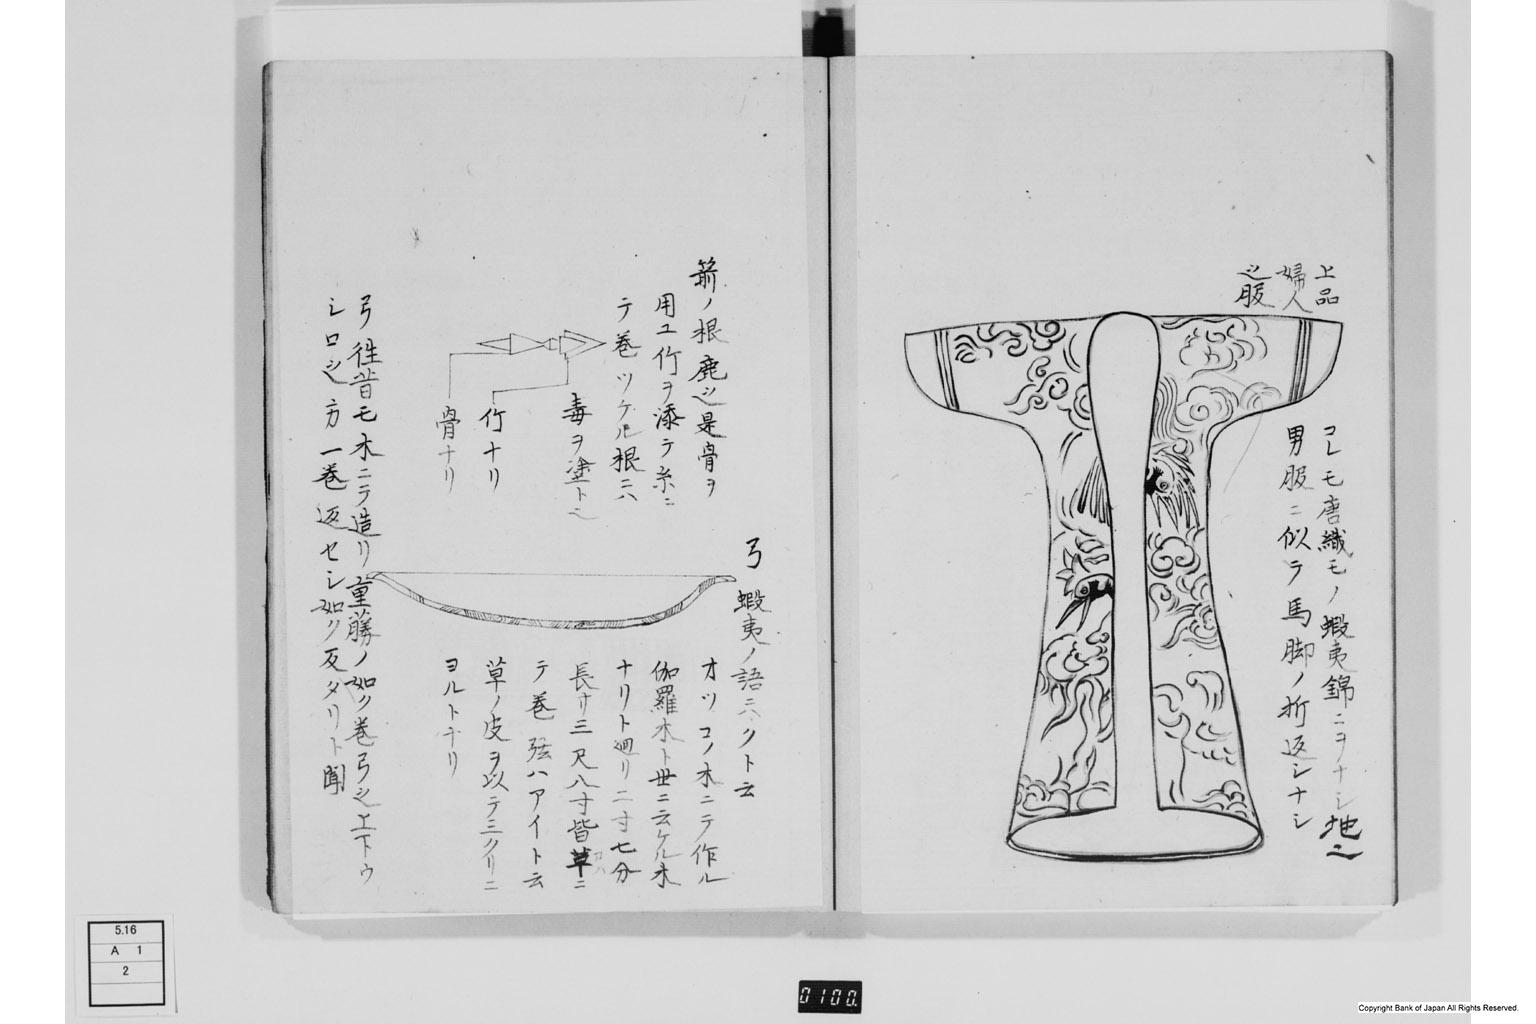 上品
婦人
之服
コレモ唐織モノ蝦夷錦ニヲナシ地也
男服ニ似テ馬脚ノ折返シナシ
箭ノ根鹿之是骨ヲ
用ユ竹ヲ添テ糸ニ
テ巻ツケル根ニハ
毒ヲ塗ト之
竹ナリ
骨ナリ
弓
蝦夷ノ語ニハクト云
オツコノ木ニテ作ル
伽羅木ト世ニ云ケル木
ナリト廻リ二寸七分
長サ三尺八寸皆草ニ
テ巻弦ハアイト云
草ノ皮ヲ以テ三クリニ
ヨルトナリ
弓往昔モ木ニテ造リ重藤ノ如ク巻弓之上下ウ
シロ之方一巻返セシ如ク反タリト聞
5.16
A 1
2
0100.
Copyright Bank of Japan All Rights Reserved.